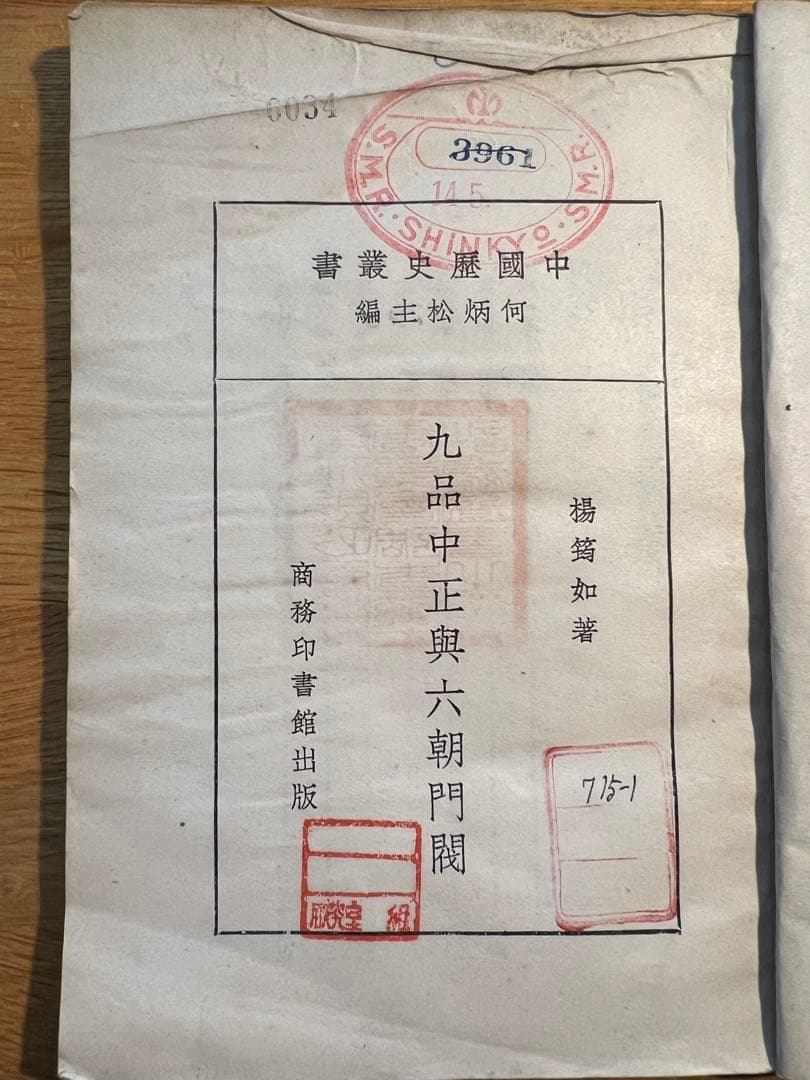 0034
3961
14.5.
S.M.R. SHINKYO. S.M.R.
中國歷史叢書
何炳松主編
楊筠如著
九品中正與六朝門閥
商務印書館出版
715-1